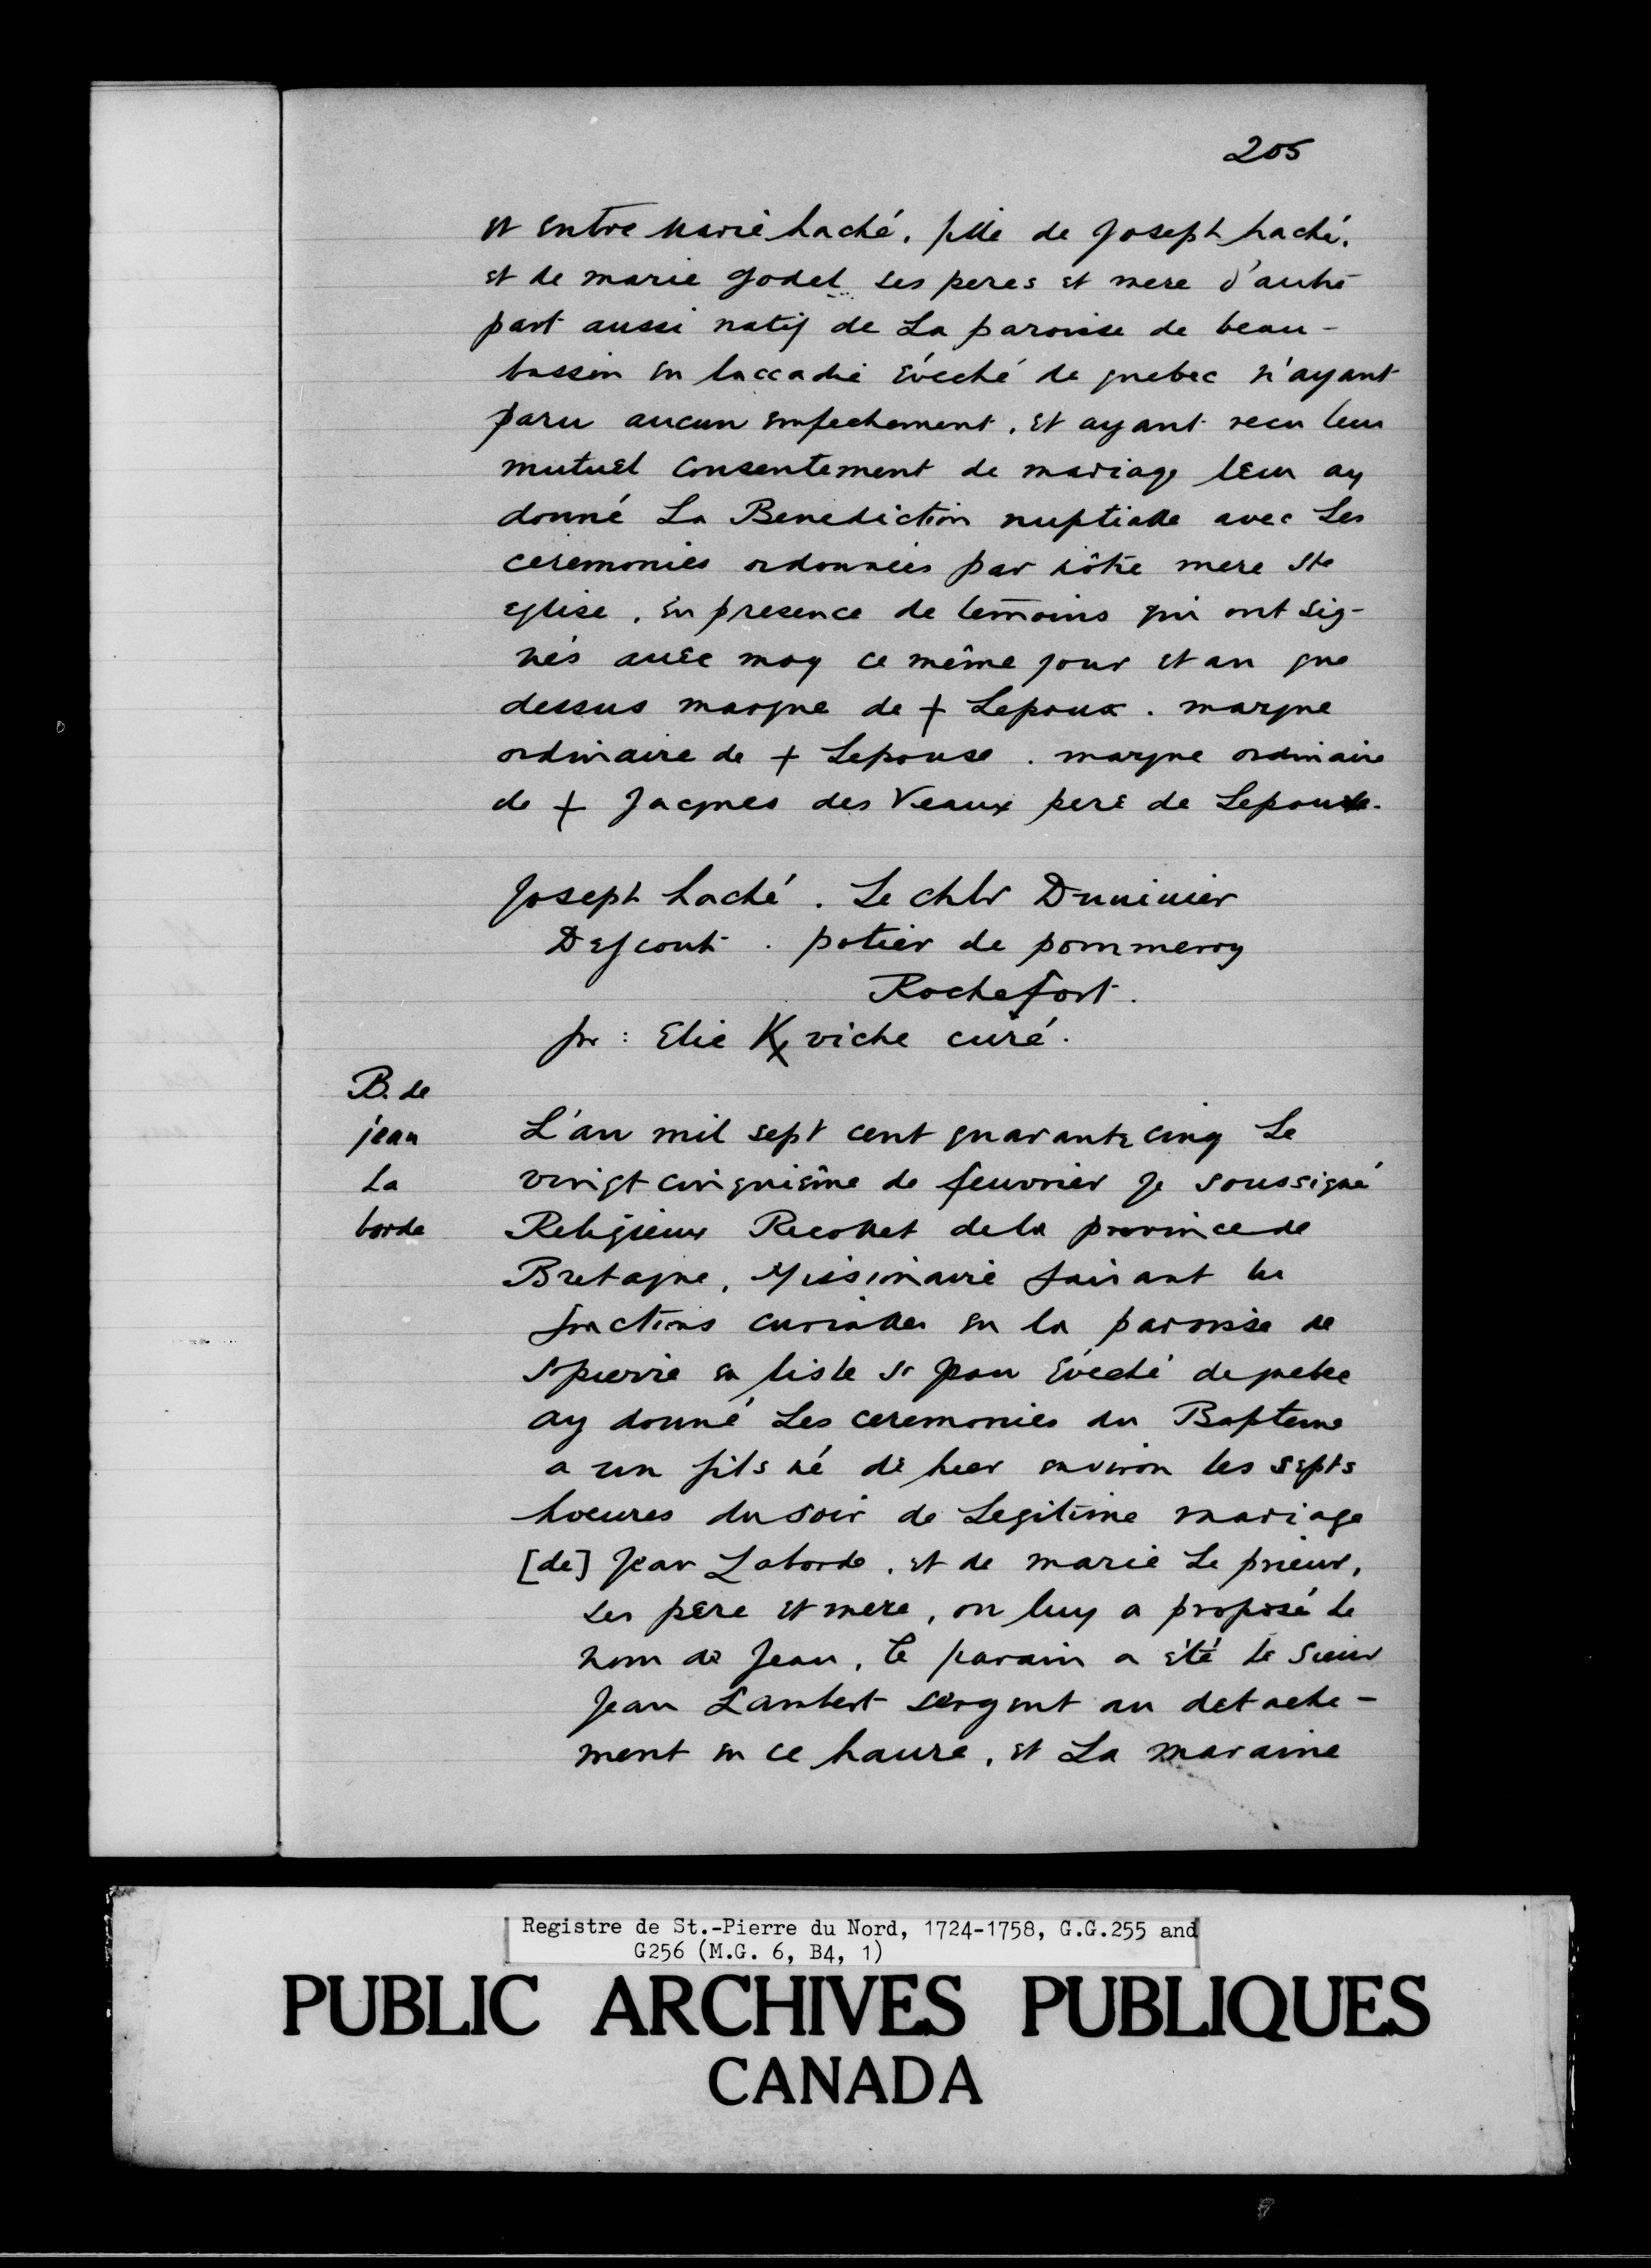 205
et entre marie haché, fille de Joseph haché,
et de marie godel ses peres et mere d'autre
part aussi natif de La paroisse de beau-
bassin en laccadie évéché de quebec n'ayant
paru aucun empechement, et ayant recu leur
mutuel consentement de mariage leur ay
donné La Benediction nuptialle avec Les
ceremonies ordonnées par nôtre mere ste
eglise, en presence de temoins qui ont sig-
nés avec moy ce même jour et an que
dessus marque de + Lepoux. marque
ordinaire de + Lepouse. marque ordinaire
de + Jacques des Veaux pere de Lepoux.
Joseph haché. Le chlr Duvivier
Descout. potier de pommeroy
Rochefort.
fr: Elie K viche curé.
B. de
jean
La
borde
L'an mil sept cent quarante cinq Le
vingt cinquiême de feuvrier je soussigné
Religieux Recollet dela province de
Bretagne, Missionaire faisant les
fonctions curialles en la paroisse de
St pierre en lisle St Jean évéché de quebec
ay donné Les ceremonies du Bapteme
a un fils né de hier environ les septs
hoeures du soir de Legitime mariage
[de] Jean Laborde, et de marie Le prieur,
ses pere et mere, on luy a proposé le
nom de Jean, le parain a été le sieur
Jean Lambert sergent au detache-
ment en ce havre, et La maraine
Registre de St.-Pierre du Nord, 1724-1758, G.G.255 and
G256 (M.G. 6, B4, 1)
PUBLIC ARCHIVES PUBLIQUES
CANADA